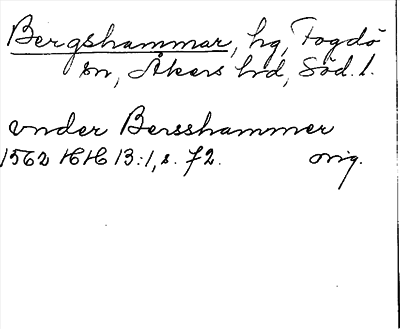 Bergshammar, hg, Fogdö
sn, Åkers hd, Söd. l.
vnder Bersshammer
1562 HH 13:1, s. 72. orig.